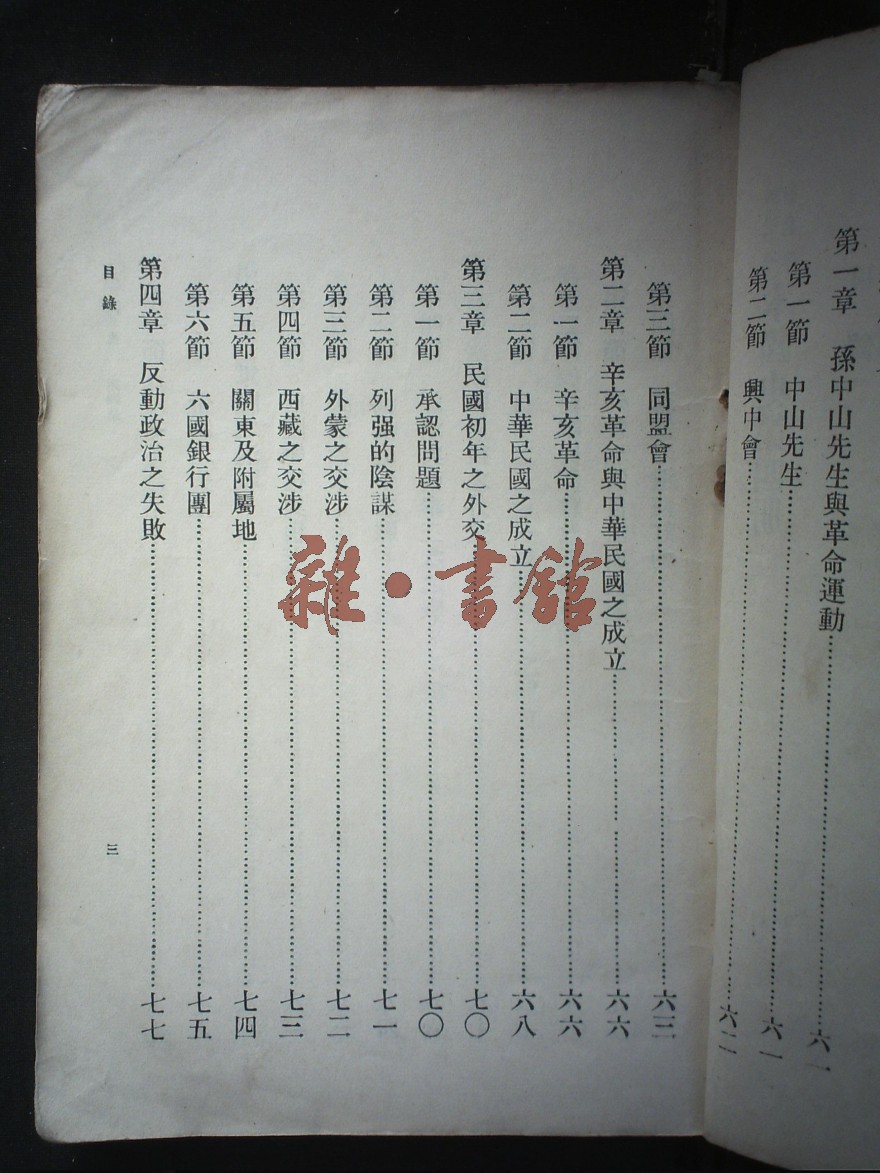 第一章　孫中山先生與革命運動……六一
第一節　中山先生……六一
第二節　興中會……六二
第三節　同盟會……六三
第二章　辛亥革命與中華民國之成立……六六
第一節　辛亥革命……六六
第二節　中華民國之成立……六八
第三章　民國初年之外交……七〇
第一節　承認問題……七〇
第二節　列强的陰謀……七一
第三節　外蒙之交涉……七二
第四節　西藏之交涉……七三
第五節　關東及附屬地……七四
第六節　六國銀行團……七五
第四章　反動政治之失敗……七七
目錄　三
雜·書館